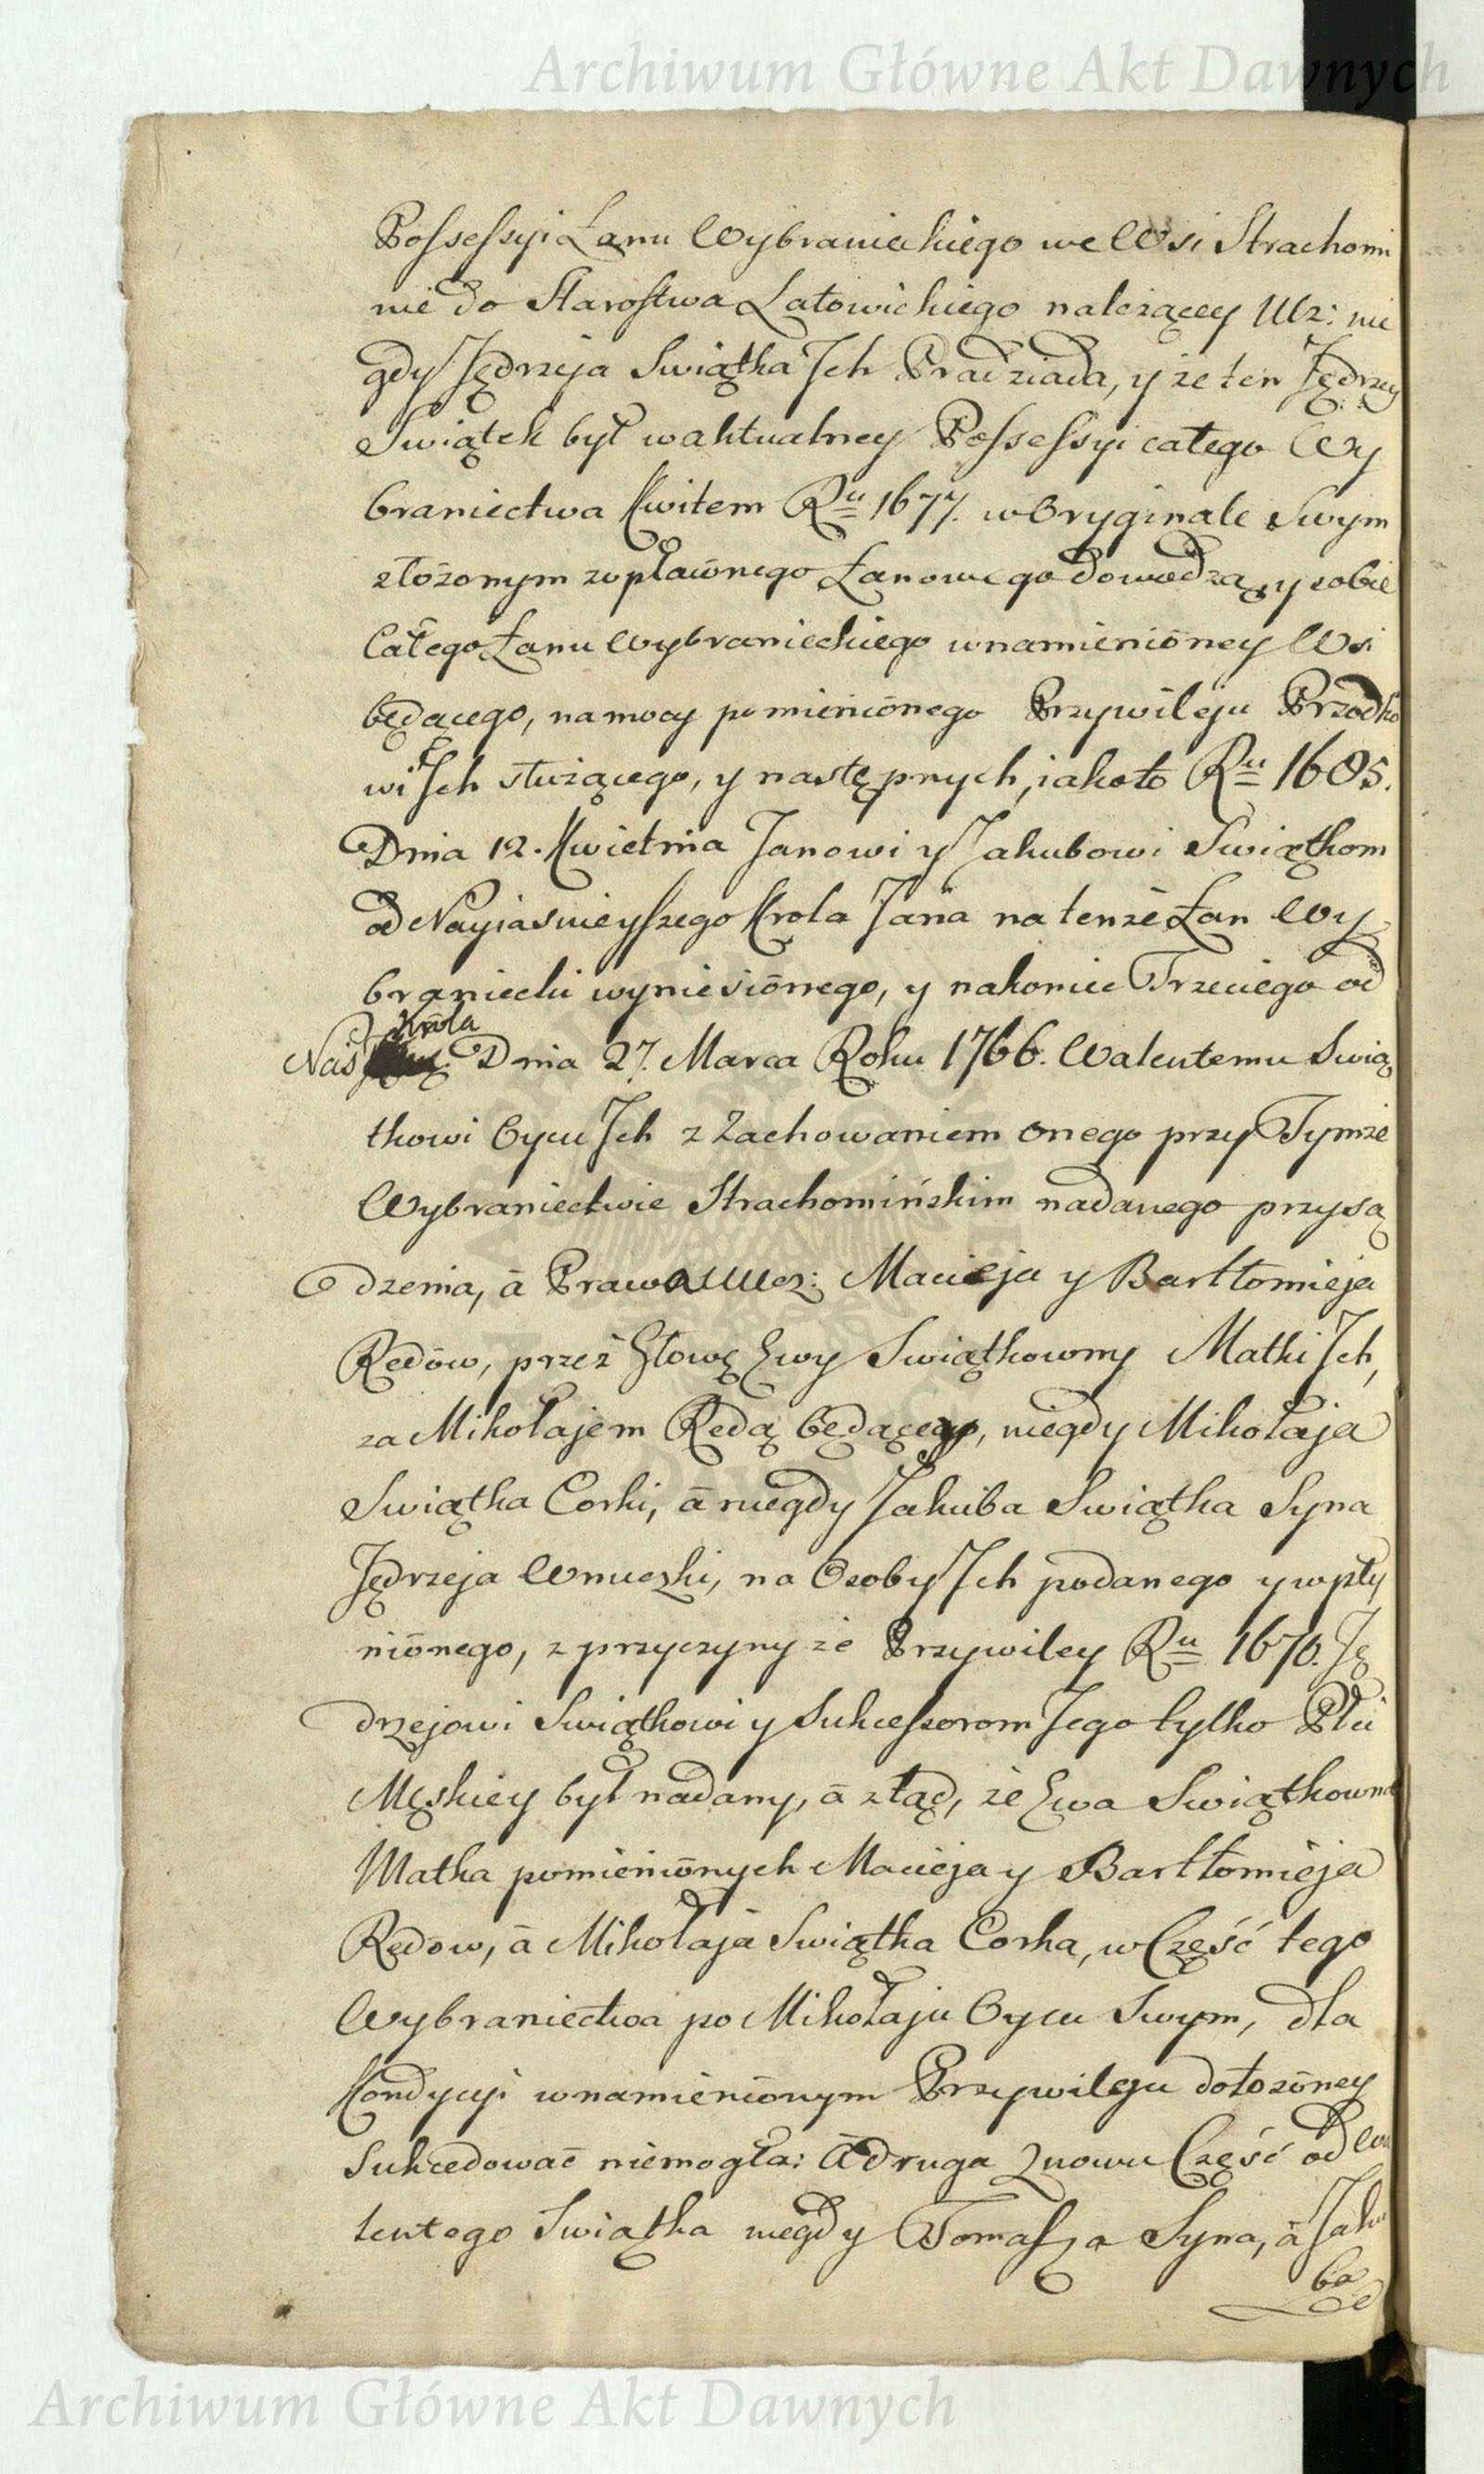 Archiwum Główne Akt Dawnych
Possessyi Łanu Wybranieckiego we Wsi Strachomi
nie do Starostwa Latowickiego należącey Ucz: nie
gdy Jędrzeja Swiątka Jch Pradziada, y że ten Jędrzey
Swiątek był w aktualney Possessyi całego Wy
braniectwa Kwitem Ru 1677. w Oryginale Swym
złożonym z opłacōnego Łanowego dowodzą, y sobie
Całego Łanu Wybranieckiego w namieniōney Wsi
będącego, na mocy pomieniōnego Przywileju Przodko
wi Jch służącego, y następnych, iakoto Ru 1685.
Dnia 12. Kwietnia Janowi y Jakubowi Swiątkom
od Nayiasnieyszego Krola Jana na tenże Łan Wy
braniecki wyniesiōnego, y nakoniec Trzeciego od
Krōla
Nas Dnia 27. Marca Roku 1766. Walentemu Swią
tkowi Oycu Jch z Zachowaniem onego przy Tymże
Wybraniectwie Strachomińskim nadanego przysą
dzenia, ā Prawa Ucz: Macieja y Bartłomieja
Redōw, przez Głowę Ewy Swiątkowny Matki Jch,
za Mikołajem Redą będącey, niegdy Mikołaja
Swiątka Corki, ā niegdy Jakuba Swiątka Syna
Jędrzeja Wnuczki, na Osoby Jch podanego y wpły
niōnego, z przyczyny że Przywiley Ru 1670. Ję
drzejowi Swiątkowi y Sukcessorom Jego tylko Płci
Męskiey był nadany, ā ztąd, że Ewa Swiątkowna
Matka pomieniōnych Macieja y Bartłomieja
Redow, ā Mikołaja Swiątka Corka, w Część tego
Wybraniectwa po Mikołaju Oycu Swym, dla
Kondycyi w namieniōnym Przywileju dołożōney
Sukcedować niemogła: Ā druga Znowu Część od Wa
lentego Swiątka niegdy Tomasza Syna, ā Jaku
ba
Archiwum Główne Akt Dawnych